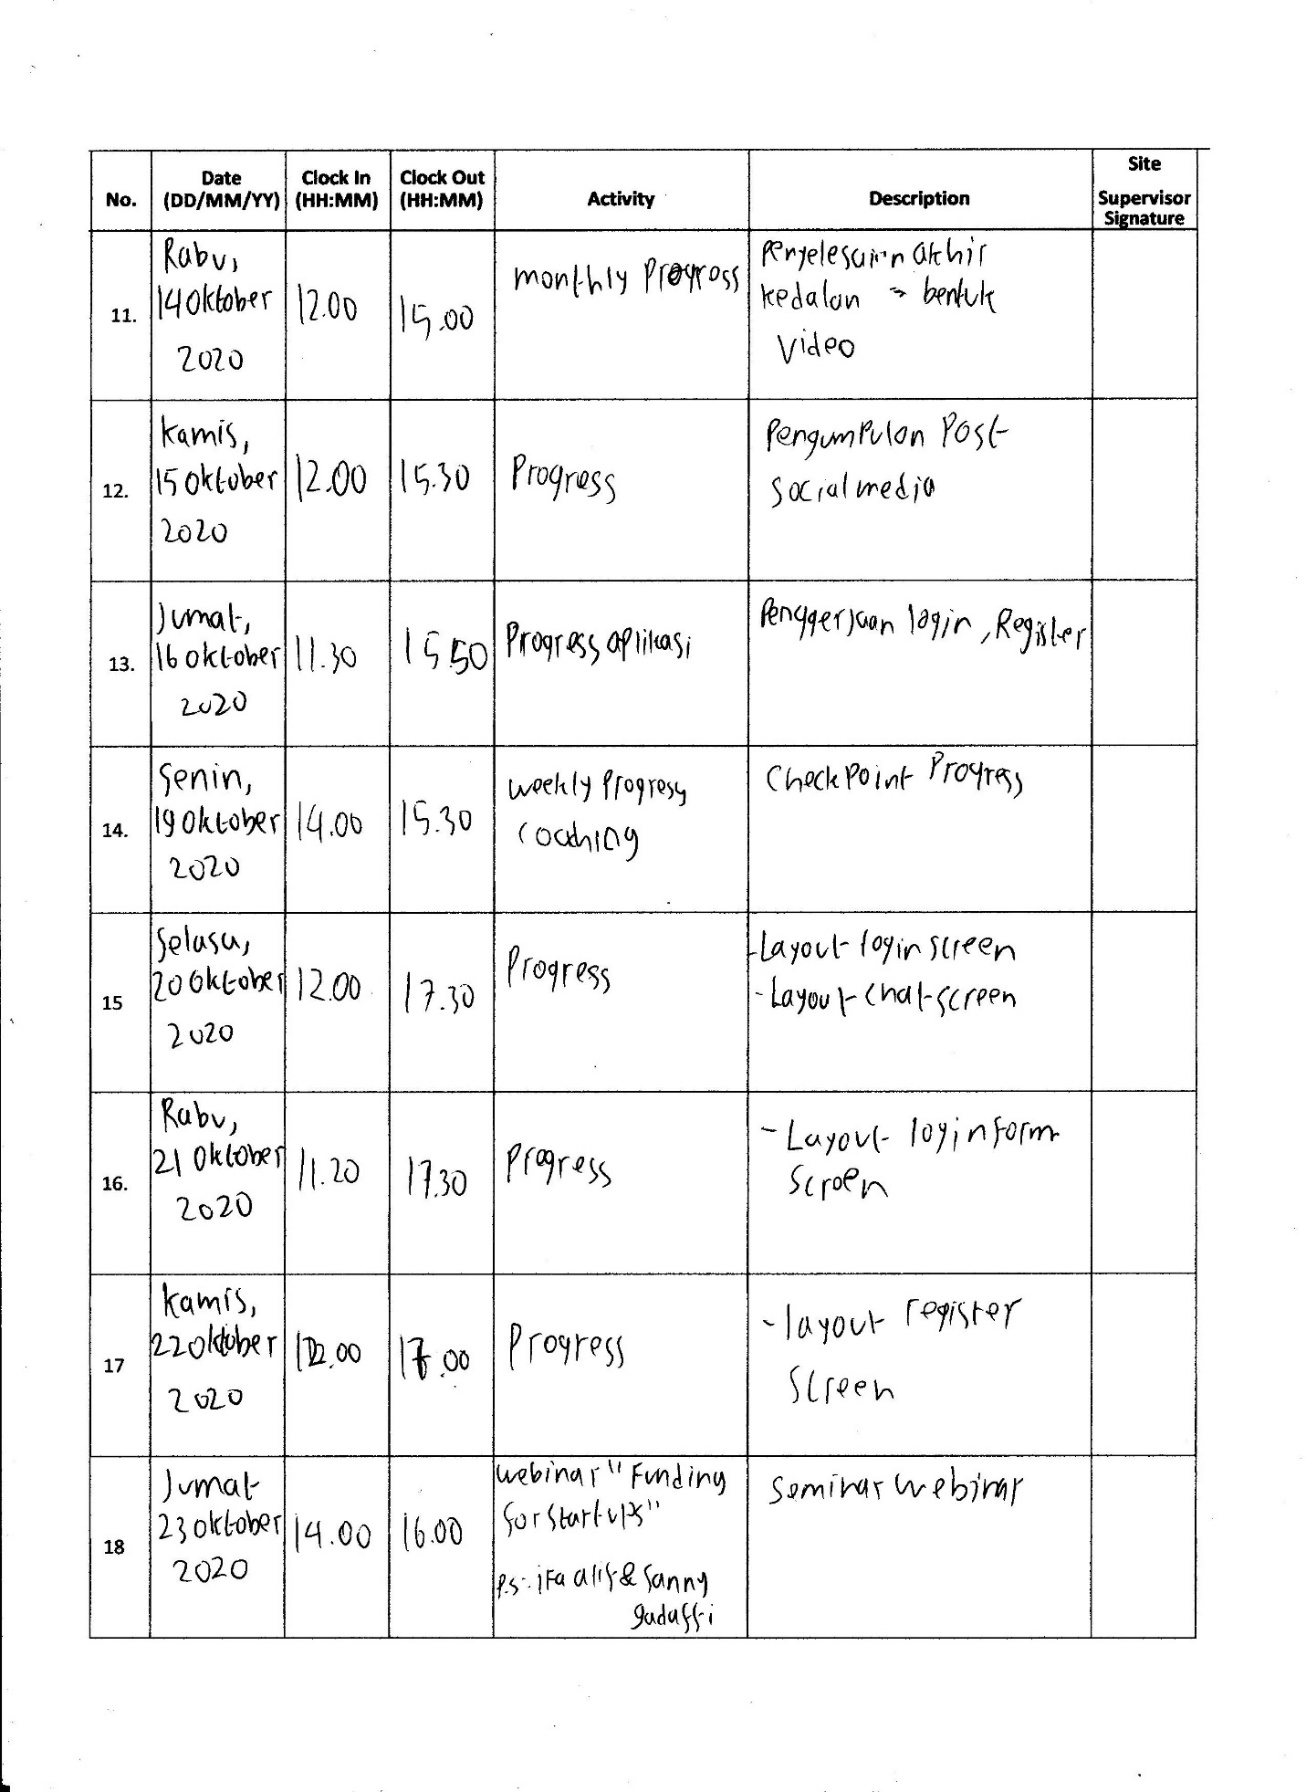 No.
Date
(DD/MM/YY)
Clock In
(HH:MM)
Clock Out
(HH:MM)
Activity
Description
Site
Supervisor
Signature
11.
Rabu,
14 Oktober
2020
12.00
15.00
monthly Progress
Penyelesaian akhir
kedalan → bentuk
Video
12.
Kamis,
15 Oktober
2020
12.00
15.30
Progress
Pengumpulan Post
Social media
13.
Jumat,
16 oktober
2020
11.30
15.50
Progress aplikasi
Penggerjaan login, Register
14.
Senin,
19 Oktober
2020
14.00
15.30
weekly Progress
coaching
Checkpoint Progress
15
Selasa,
20 Oktober
2020
12.00
17.30
Progress
-Layout login screen
- Layout chat screen
16.
Rabu,
21 Oktober
2020
11.20
17.30
Progress
- Layout login form
Screen
17
Kamis,
22 oktober
2020
12.00
17.00
Progress
- layout register
Screen
18
Jumat
23 oktober
2020
14.00
16.00
Webinar "Funding
for Startups"
P.s: ifa alif & Sanny
gadaffi
Seminar Webinar